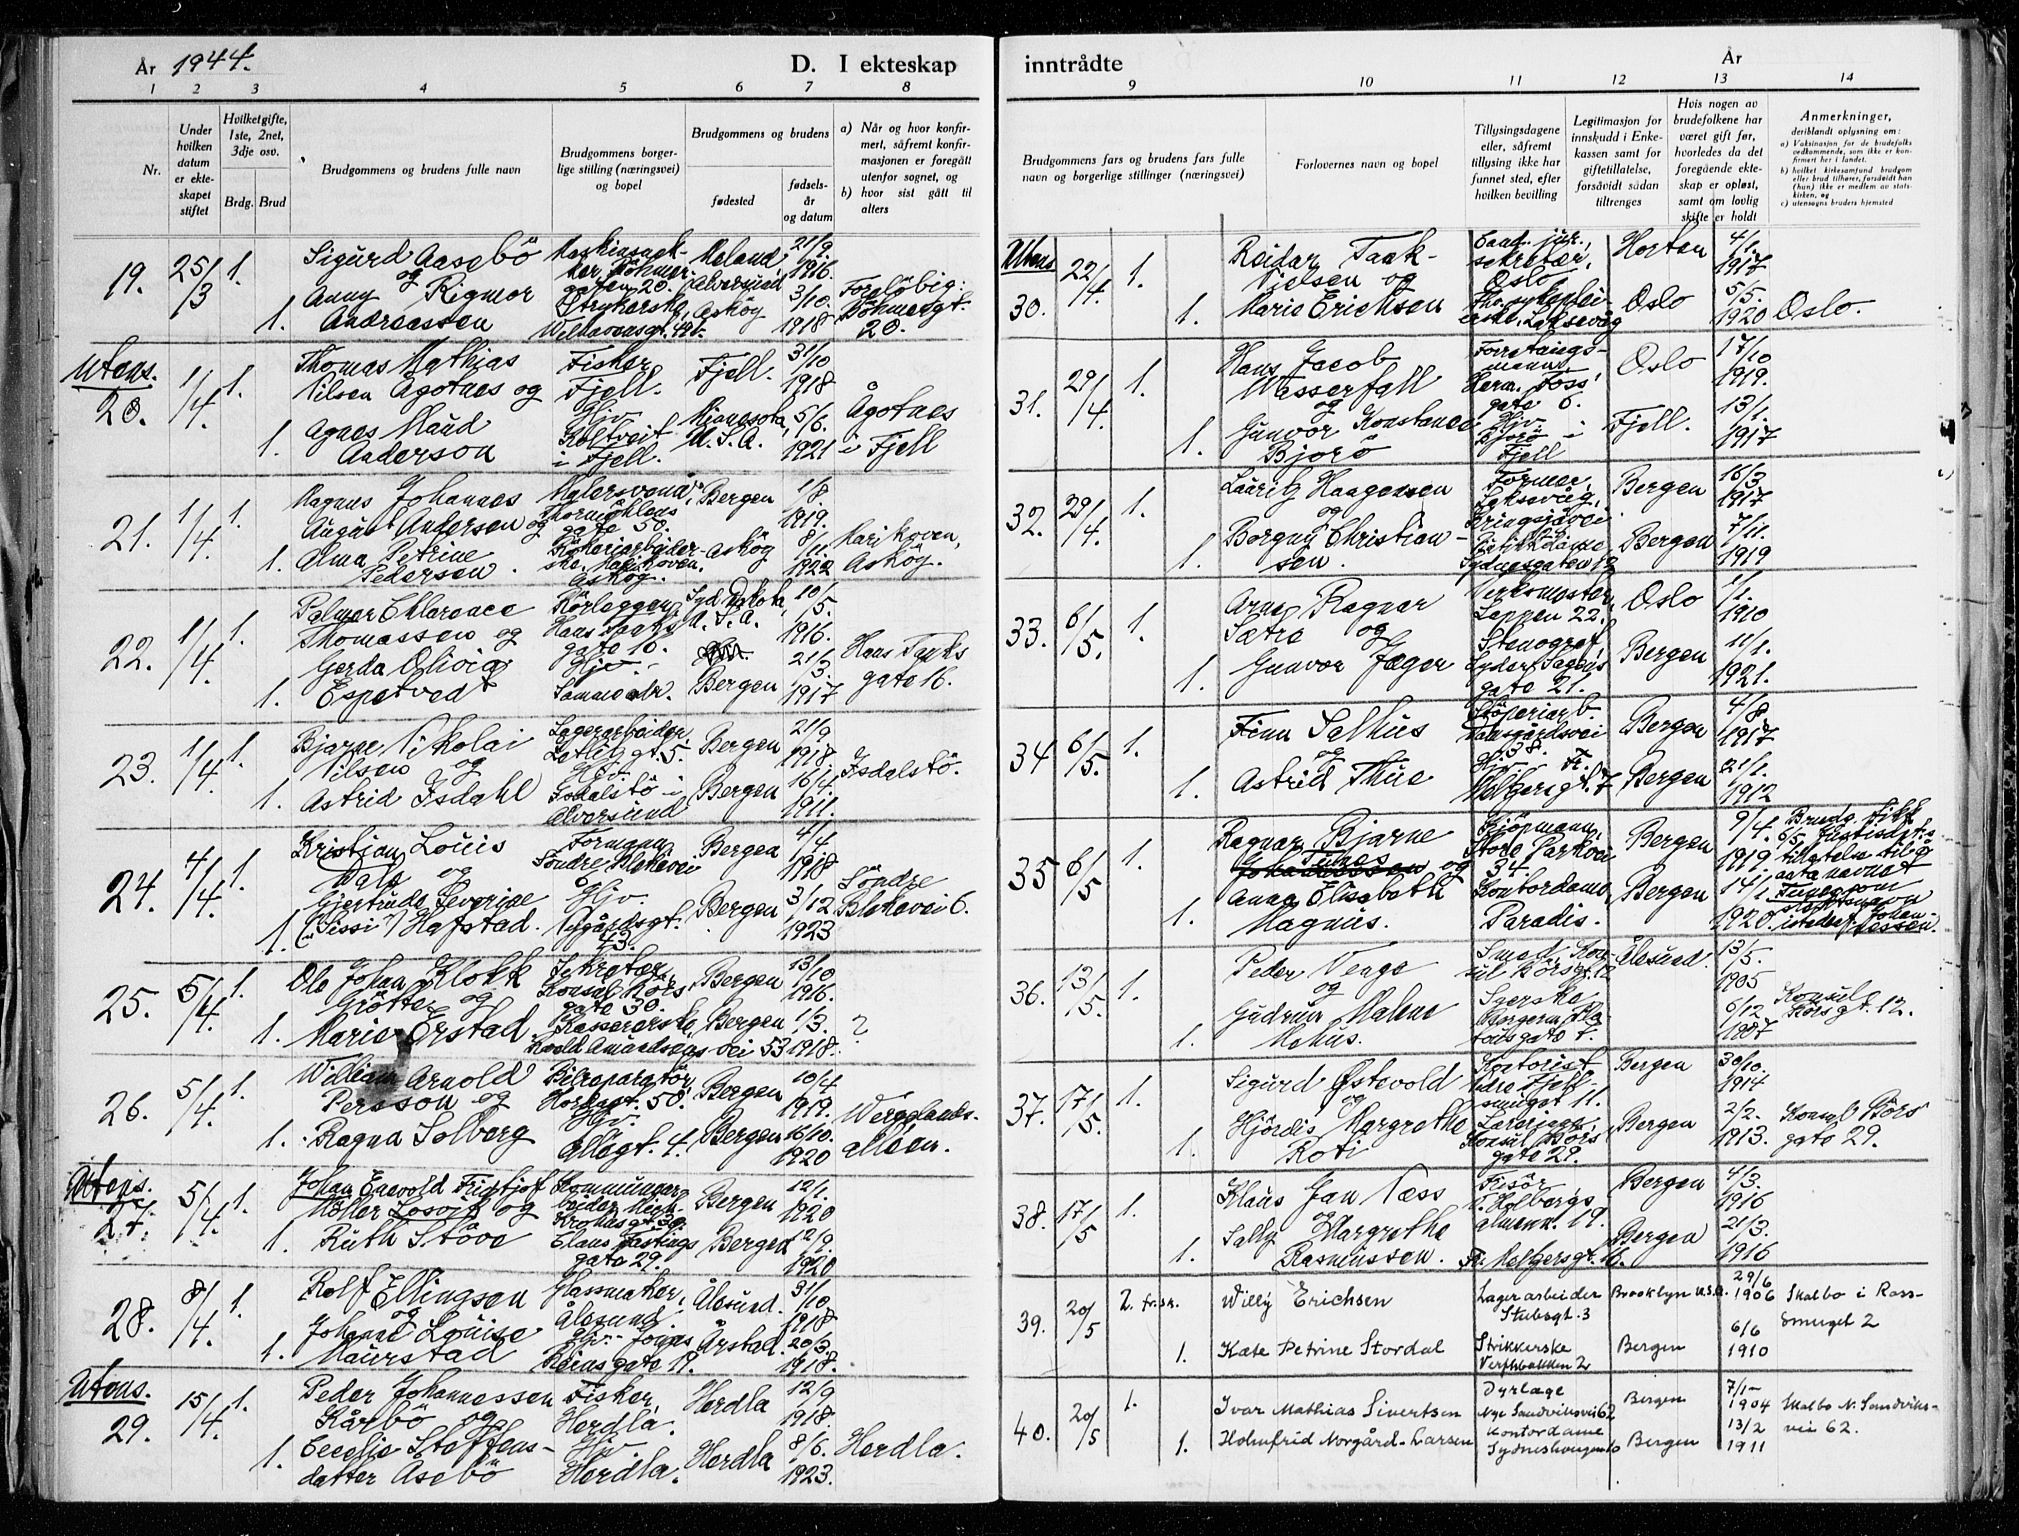 År 1944.
D. I ekteskap
inntrådte
År
1 2 3 4 5 6 7 8
9 10 11 12 13 14
Nr.
Under hvilken datum er ekteskapet stiftet
Hvilket gifte, 1ste, 2net, 3dje osv.
Brdg. Brud
Brudgommens og brudens fulle navn
Brudgommens borgerlige stilling (næringsvei) og bopel
Brudgommens og brudens
fødested
fødselsår og datum
a) Når og hvor konfirmert, såfremt konfirmasjonen er foregått utenfor sognet, og
b) hvor sist gått til alters
Brudgommens fars og brudens fars fulle navn og borgerlige stillinger (næringsvei)
Forlovernes navn og bopel
Tillysingsdagene eller, såfremt tillysing ikke har funnet sted, efter hvilken bevilling
Legitimasjon for innskudd i Enkekassen samt for giftetillatelse, forsåvidt sådan tiltrenges
Hvis nogen av brudefolkene har været gift før, hvorledes da det foregående ekteskap er opløst, samt om lovlig skifte er holdt
Anmerkninger,
deriblandt oplysning om:
a) Vaksinasjon for de brudefolks vedkommende, som ikke er konfirmert her i landet.
b) hvilket kirkesamfund brudgom eller brud tilhører, forsåvidt han (hun) ikke er medlem av statskirken, og
c) utensogns bruders hjemsted
19. 25/3 1. Sigurd Aasebö Meland, 21/9 1916.
og gaten 20. Alversund
1. Anny Rigmor Andreassen Strykerske, Askøy 3/10. 1918 Foreløbig: Böhmersgt. 20.
Utens. 20. 1/4. 1. Thomas Mathias Nilsen Ågotnes og Fisker Fjell. Fjell. 31/10 1918
1. Agnes Maud Anderson Hjv. Koltveit i Fjell. U.S.A. 5/6. 1921 Ågotnes i Fjell
21. 1/4. 1. Magnus Johannes August Andersen og Malersvend, gate 50. Bergen 1/8. 1919.
1. Alma Petrine Pedersen. Askøy. Askøy 8/11. 1922 Marikoven, Askøy.
22. 1/4. 1. Palmer Clarence Thomassen og Rörlegger, Hans Tanks gate 16. Syd Dakota, U.S.A. 10/5. 1916.
1. Gerda Olivia Espetvedt Hjv. Samme adr. Bergen 21/3. 1917 Hans Tanks gate 16.
23. 1/4. 1. Bjarne Nikolai Nilsen og Lagerarbeider, Bergen 21/9 1918
1. Astrid Isdahl Hjv. Isdalstö i Alversund Bergen 16/4. 1911. Isdalstö.
24. 4/4. 1. Kristian Louis Dale og Formann Söndre Blekevei 6 Bergen 4/1. 1918
1. Gjertrude Severine ("Sissi") Hafstad. Hjv. Nygårdsgt. 43. Bergen 3/12 1923 Söndre Blekevei 6.
25. 5/4. 1. Ole Johan Klokk Grötte og Sekretær, Konsul Börs gate 30. Bergen 13/10 1916.
1. Marie Erstad Kassererske, Roald Amundsens vei 53 Bergen 1/3. 1918. ?
26. 5/4. 1. William Arnold Persson og Bilreparatör, 50. Bergen 10/4 1919.
1. Ragna Solberg Hjv. Allégt. 4. Bergen 16/10. 1920 Wergelands-alléen.
Utens. 27. 5/4. 1. Johan Enevold Fridtjof Möller Losvik og Kommunearbeider, Mich. Krohns gt. 39. Bergen 12/1. 1920
1. Ruth Stöve Claus Fastings gate 29. Bergen 12/9. 1920
28. 8/4. 1. Rolf Ellingsen og Glassmaker, Ålesund. Ålesund. 31/10 1918
1. Johanne Louise Maurstad Hjv. Jonas Reins gate 19. Årstad. 20/3. 1918.
Utens. 29. 15/4. 1. Peder Johannessen Kårbö og Fisker, Herdla. Herdla 12/9 1918
1. Cecelie Steffensdatter Åsebö Hjv. Herdla. Herdla 8/6. 1923. Herdla.
Utens 30. 22/4. 1. Reidar Taak-Nielsen og Cand. jur., sekretær, Oslo Horten 4/1. 1917
1. Marie Erichsen Laksevåg Oslo 5/5. 1920 Oslo.
31. 29/4. 1. Hans Jacob Wasserfall og Forretningsmann, Herm. Foss' gate 6. Oslo 17/10 1919.
1. Gunvor Konstance Bjorö Hjv. Bjorö i Fjell Fjell. 13/1. 1917
32. 29/4. 1. Lauritz Haagensen og Former, Laksevåg, Bergen 16/3 1917
1. Borgny Christiansen. Sydnesgaten 12 Bergen 7/11. 1919
33. 6/5. 1. Arne Ragnar Sætre og Verksmester, Lappen 22. Oslo 1/1. 1910
1. Gunvor Jæger Stenograf, Lyder Sagens gate 21. Bergen 11/1. 1921.
34 6/5. 1. Finn Salhus og Støperiarb. Damsgårdsvei 38. Bergen 4/8 1917
1. Astrid Thue Hjv. Fr. Meltzersgt. 7 Bergen 21/1. 1912
35 6/5 1. Ragnar Bjarne Tunes Johannessen og Kjöpmann, Store Parkvei 34 Bergen 9/4. 1919. Brudg. fikk 6/5 justisdep.s tillatelse til å anta navnet Tunes som slektsnavn istedenf. Johannessen.
1. Anna Elisabeth Magnus. Kontordame, Paradis. Bergen 14/1. 1920.
36. 13/5. 1. Peder Venge og Smed, Konsul Börsgt. 12 Ålesund. 13/5. 1905
1. Gudrun Malene Mehus. Syerske 6/12 1907 Konsul Börsgt. 12.
37. 17/5. 1. Sigurd Østevold og Kontorist Bergen 30/10. 1914
1. Hjördis Margrethe Roti Konsul Börs gate 29. Bergen 2/2. 1913. Konsul Börs gate 29.
38. 17/5 1. Klaus Jan Næss og Frisör, L. Holbergs almenn. 19. Bergen 4/3. 1916
1. Sally Margrethe Rasmussen. Fr. Meltzersgt. 16. Bergen 21/3. 1916
39. 20/5 2. fr.sk. Willy Erichsen Lagerarbeider Stubsgt. 3 Brooklyn U.S.A. 29/6 1906 Skal bo i Rosesmuget 2
1. Kate Petrine Stordal Strikkerske Verftsbakken 2 Bergen 6/6 1910
40. 20/5 1. Ivar Mathias Sivertsen Dyrlæge Nye Sandviksvei 62 Bergen 7/1- 1904 Skal bo N. Sandviksvei 62.
1. Holmfrid Norgård-Larsen Kontordame Sydneshaugen 10 Bergen 13/2 1911